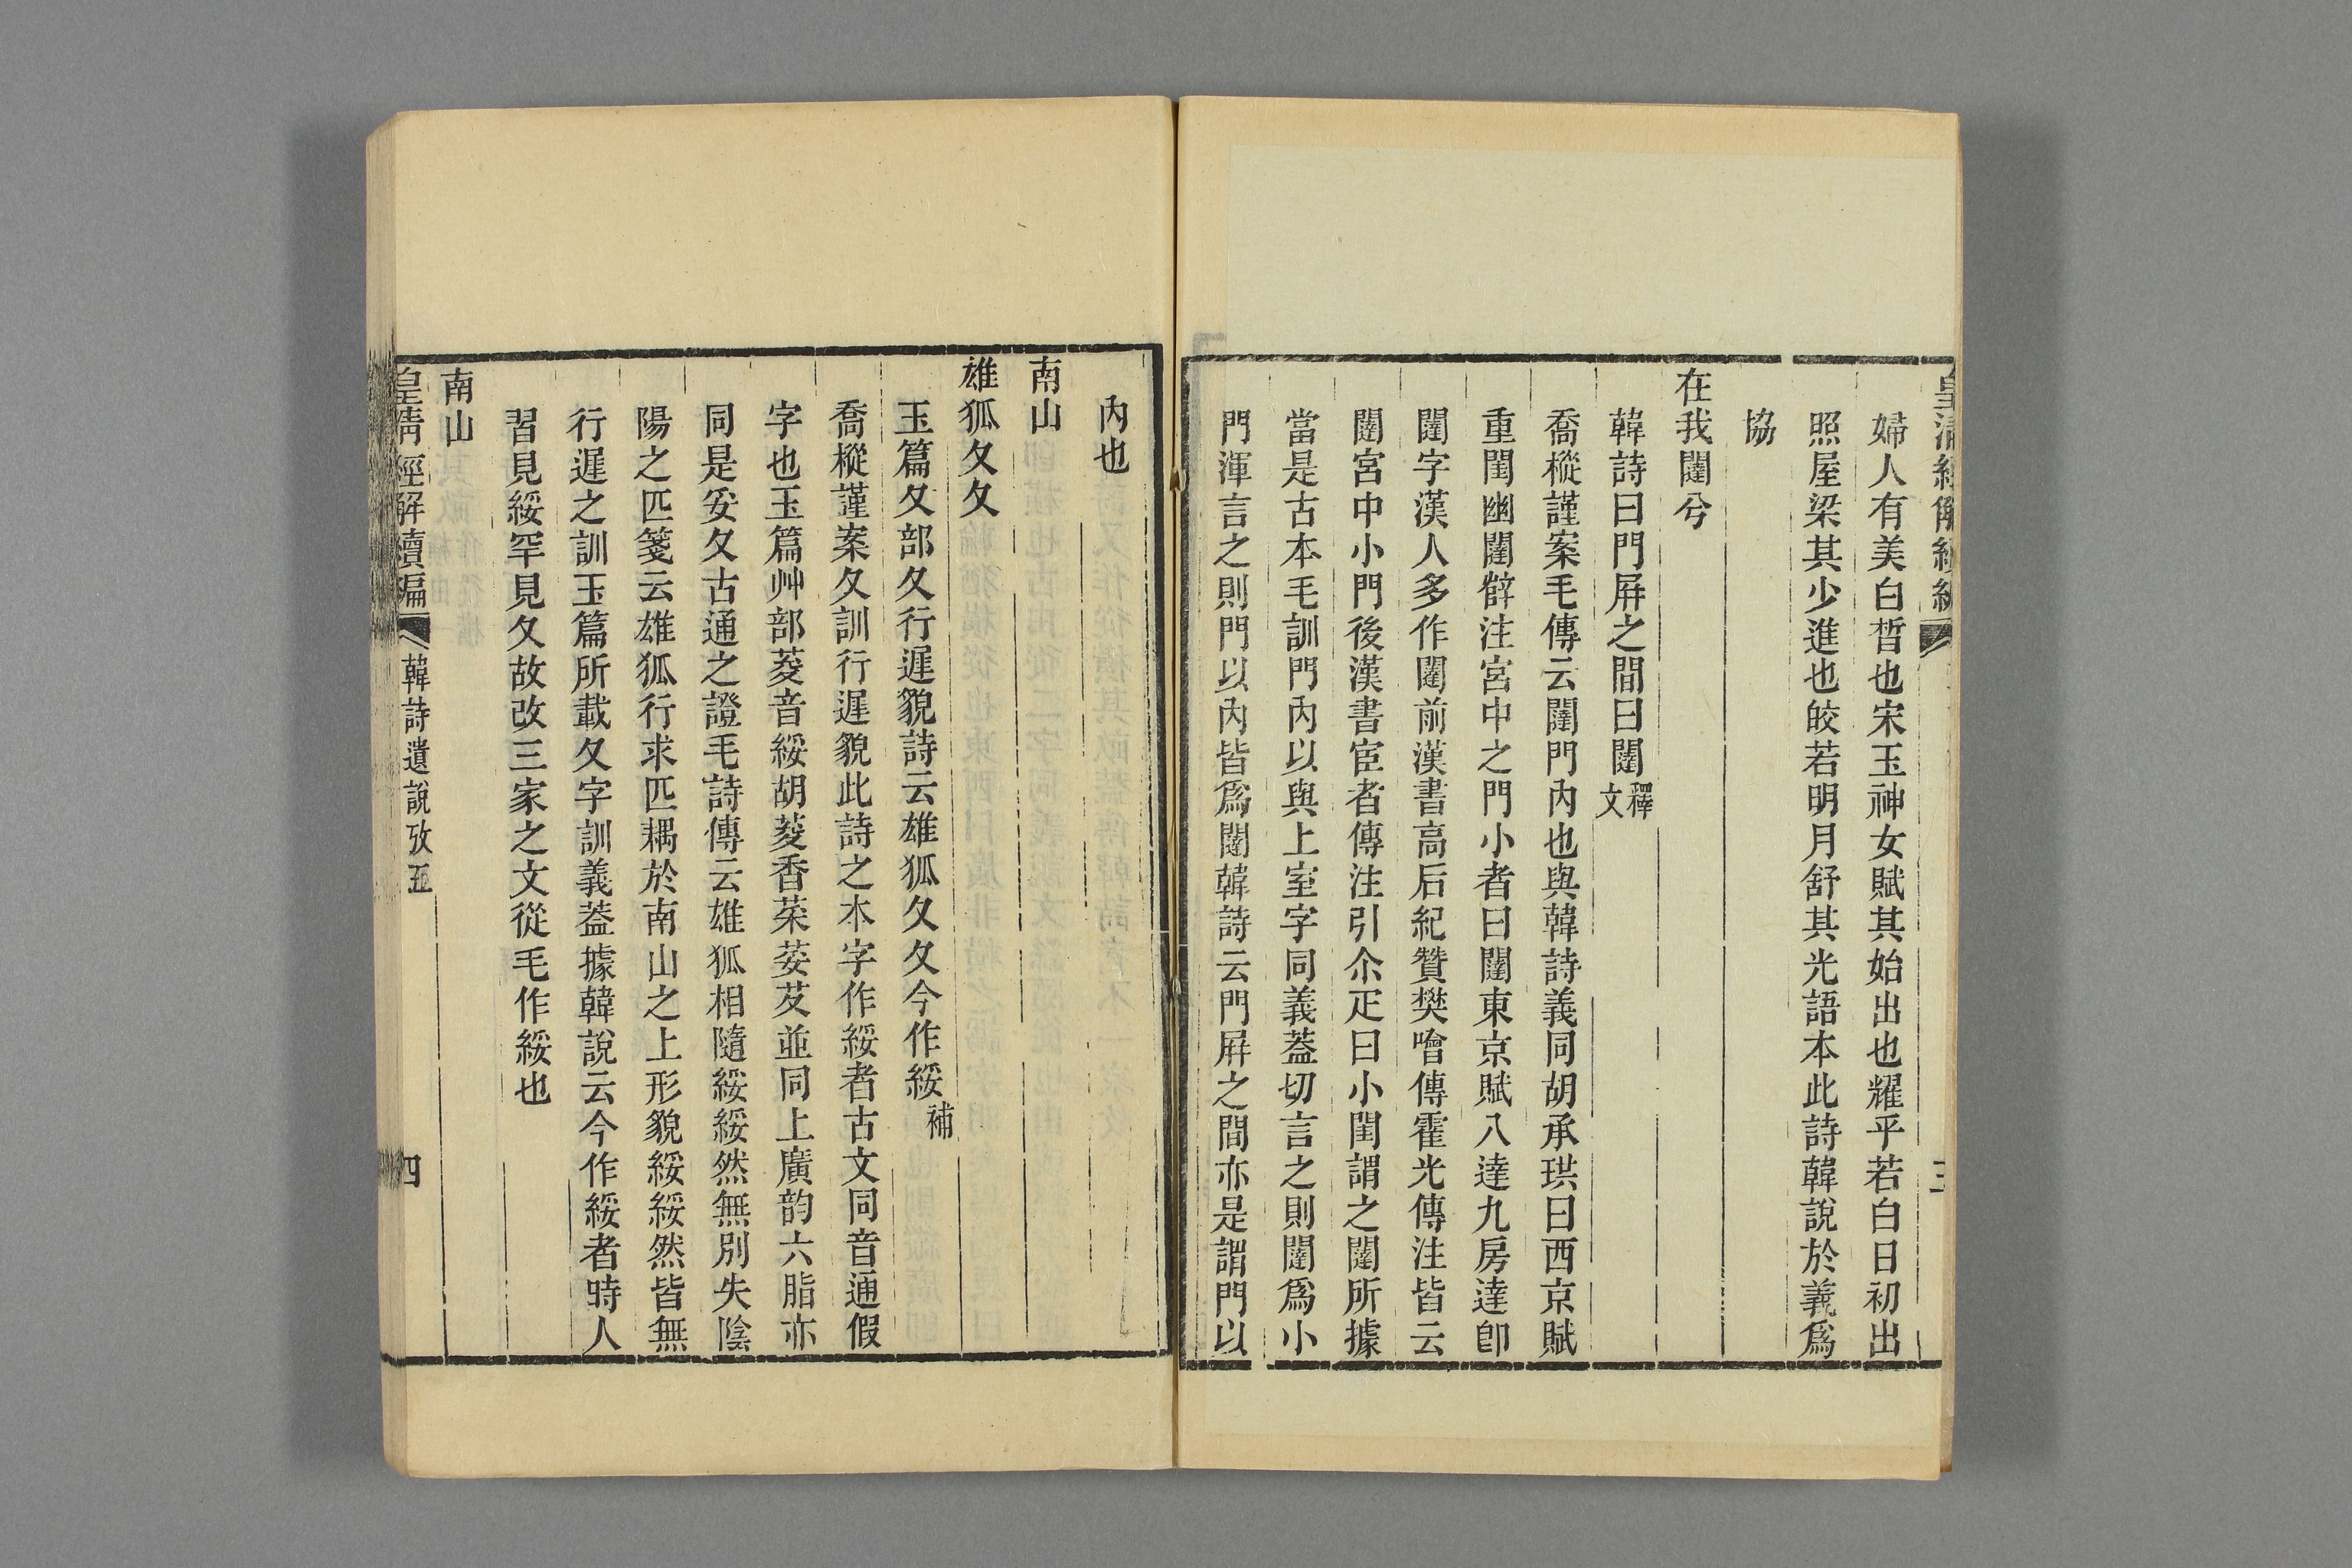 皇清經解續編
三
婦人有美白晳也宋玉神女賦其始出也耀乎若白日初出
照屋梁其少進也皎若明月舒其光語本此詩韓說於義爲
協
在我闥兮
韓詩曰門屛之間曰闥釋文
喬樅謹案毛傳云闥門內也與韓詩義同胡承珙曰西京賦
重閨幽闥薛注宮中之門小者曰闥東京賦八達九房達卽
闥字漢人多作闥前漢書高后紀贊樊噲傳霍光傳注皆云
闥宮中小門後漢書宦者傳注引尒疋曰小閨謂之闥所據
當是古本毛訓門內以與上室字同義葢切言之則闥爲小
門渾言之則門以內皆爲闥韓詩云門屛之間亦是謂門以
內也
南山
雄狐夊夊
玉篇夊部夊行遲貌詩云雄狐夊夊今作綏補
喬樅謹案夊訓行遲貌此詩之本字作綏者古文同音通假
字也玉篇艸部荾音綏胡荾香菜荽芆並同上廣韵六脂亦
同是妥夊古通之證毛詩傳云雄狐相隨綏綏然無別失陰
陽之匹箋云雄狐行求匹耦於南山之上形貌綏綏然皆無
行遲之訓玉篇所載夊字訓義葢據韓說云今作綏者時人
習見綏罕見夊故改三家之文從毛作綏也
南山
皇清經解續編
韓詩遺說攷五
四